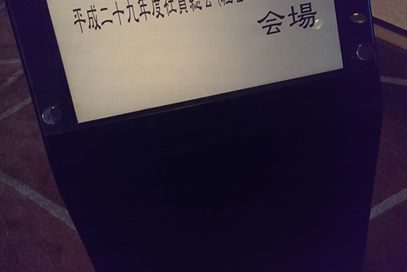 平成二十九年度社員総会
会場